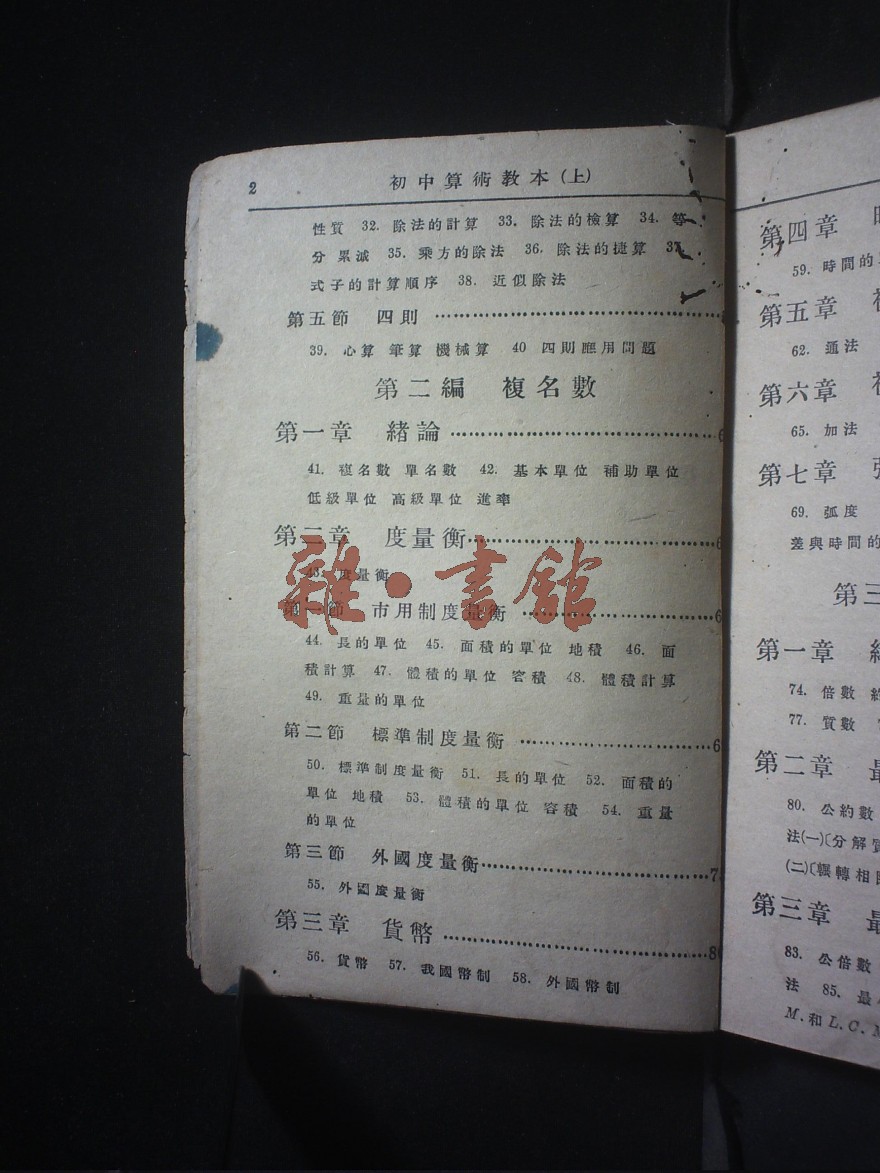 2
初中算術教本(上)
性質 32. 除法的計算 33. 除法的檢算 34. 等
分 累減 35. 乘方的除法 36. 除法的捷算 37.
式子的計算順序 38. 近似除法
第五節 四則
39. 心算 筆算 機械算 40 四則應用問題
第二編 複名數
第一章 緒論 6
41. 複名數 單名數 42. 基本單位 補助單位
低級單位 高級單位 進率
第二章 度量衡 6
43. 度量衡
第一節 市用制度量衡 6
44. 長的單位 45. 面積的單位 地積 46. 面
積計算 47. 體積的單位 容積 48. 體積計算
49. 重量的單位
第二節 標準制度量衡 6
50. 標準制度量衡 51. 長的單位 52. 面積的
單位 地積 53. 體積的單位 容積 54. 重量
的單位
第三節 外國度量衡 7
55. 外國度量衡
第三章 貨幣 8
56. 貨幣 57. 我國幣制 58. 外國幣制
雜·書館
第四章
59. 時間的
第五章
62. 通法
第六章
65. 加法
第七章
69. 弧度
差與時間的
第三
第一章
74. 倍數
77. 質數
第二章
80. 公約數
法(一)〔分解質
(二)〔輾轉相
第三章
83. 公倍數
法 85. 最
M.和L.C.M